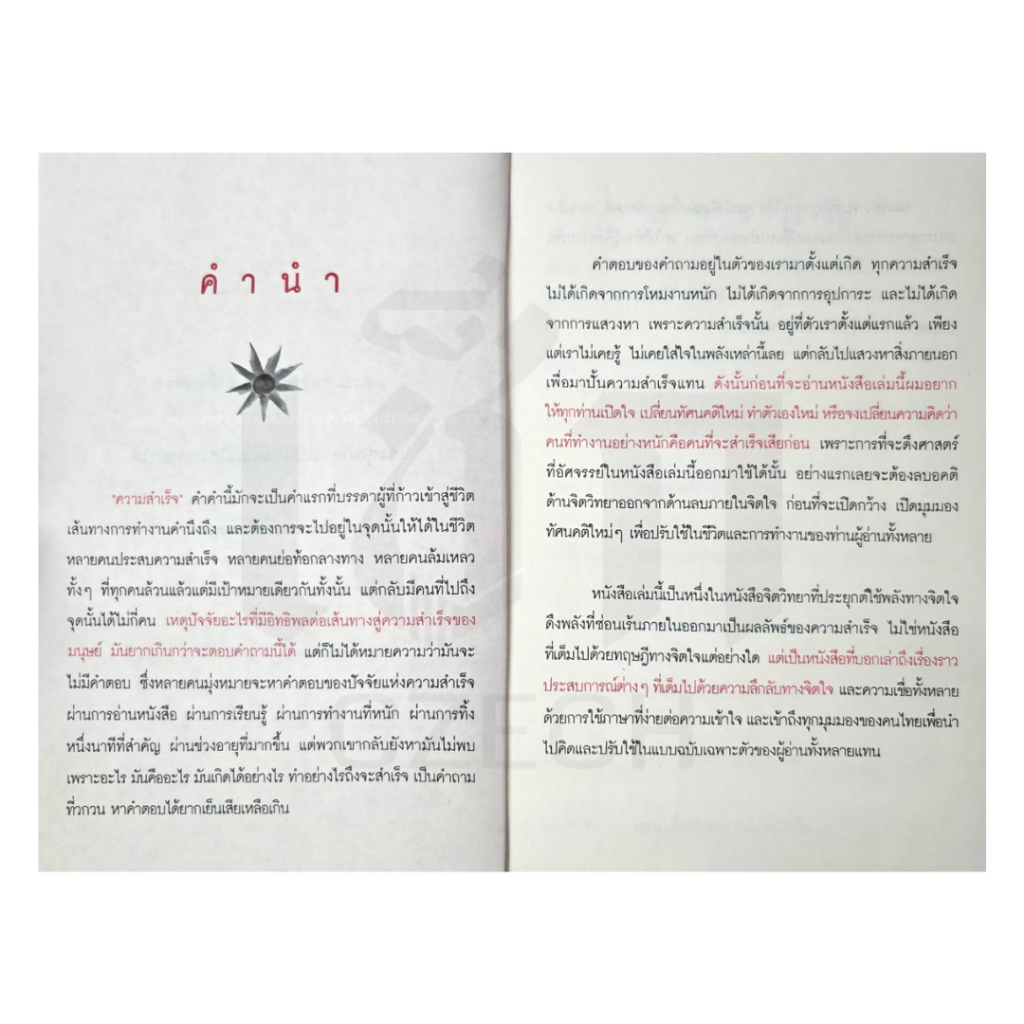 คำนำ
"ความสำเร็จ" คำคำนี้มักจะเป็นคำแรกที่บรรดาผู้ที่ก้าวเข้าสู่ชีวิต
เส้นทางการทำงานคำนึงถึง และต้องการจะไปอยู่ในจุดนั้นให้ได้ในชีวิต
หลายคนประสบความสำเร็จ หลายคนย่อท้อกลางทาง หลายคนล้มเหลว
ทั้งๆ ที่ทุกคนล้วนแล้วแต่มีเป้าหมายเดียวกันทั้งนั้น แต่กลับมีคนที่ไปถึง
จุดนั้นได้ไม่กี่คน เหตุปัจจัยอะไรที่มีอิทธิพลต่อเส้นทางสู่ความสำเร็จของ
มนุษย์ มันยากเกินกว่าจะตอบคำถามนี้ได้ แต่ก็ไม่ได้หมายความว่ามันจะ
ไม่มีคำตอบ ซึ่งหลายคนมุ่งหมายจะหาคำตอบของปัจจัยแห่งความสำเร็จ
ผ่านการอ่านหนังสือ ผ่านการเรียนรู้ ผ่านการทำงานที่หนัก ผ่านการทิ้ง
หนึ่งนาทีที่สำคัญ ผ่านช่วงอายุที่มากขึ้น แต่พวกเขากลับยังหามันไม่พบ
เพราะอะไร มันคืออะไร มันเกิดได้อย่างไร ทำอย่างไรถึงจะสำเร็จ เป็นคำถาม
ที่วกวน หาคำตอบได้ยากเย็นเสียเหลือเกิน
คำตอบของคำถามอยู่ในตัวของเรามาตั้งแต่เกิด ทุกความสำเร็จ
ไม่ได้เกิดจากการโหมงานหนัก ไม่ได้เกิดจากการอุปการะ และไม่ได้เกิด
จากการแสวงหา เพราะความสำเร็จนั้น อยู่ที่ตัวเราตั้งแต่แรกแล้ว เพียง
แต่เราไม่เคยรู้ ไม่เคยใส่ใจในพลังเหล่านี้เลย แต่กลับไปแสวงหาสิ่งภายนอก
เพื่อมาปั้นความสำเร็จแทน ดังนั้นก่อนที่จะอ่านหนังสือเล่มนี้ผมอยาก
ให้ทุกท่านเปิดใจ เปลี่ยนทัศนคติใหม่ ทำตัวเองใหม่ หรือจงเปลี่ยนความคิดว่า
คนที่ทำงานอย่างหนักคือคนที่จะสำเร็จเสียก่อน เพราะการที่จะดึงศาสตร์
ที่อัศจรรย์ในหนังสือเล่มนี้ออกมาใช้ได้นั้น อย่างแรกเลยจะต้องลบอคติ
ด้านจิตวิทยาออกจากด้านลบภายในจิตใจ ก่อนที่จะเปิดกว้าง เปิดมุมมอง
ทัศนคติใหม่ๆ เพื่อปรับใช้ในชีวิตและการทำงานของท่านผู้อ่านทั้งหลาย
หนังสือเล่มนี้เป็นหนึ่งในหนังสือจิตวิทยาที่ประยุกต์ใช้พลังทางจิตใจ
ดึงพลังที่ซ่อนเร้นภายในออกมาเป็นผลลัพธ์ของความสำเร็จ ไม่ใช่หนังสือ
ที่เต็มไปด้วยทฤษฎีทางจิตใจแต่อย่างใด แต่เป็นหนังสือที่บอกเล่าถึงเรื่องราว
ประสบการณ์ต่างๆ ที่เต็มไปด้วยความลึกลับทางจิตใจ และความเชื่อทั้งหลาย
ด้วยการใช้ภาษาที่ง่ายต่อความเข้าใจ และเข้าถึงทุกมุมมองของคนไทยเพื่อนำ
ไปคิดและปรับใช้ในแบบฉบับเฉพาะตัวของผู้อ่านทั้งหลายแทน
CZECH